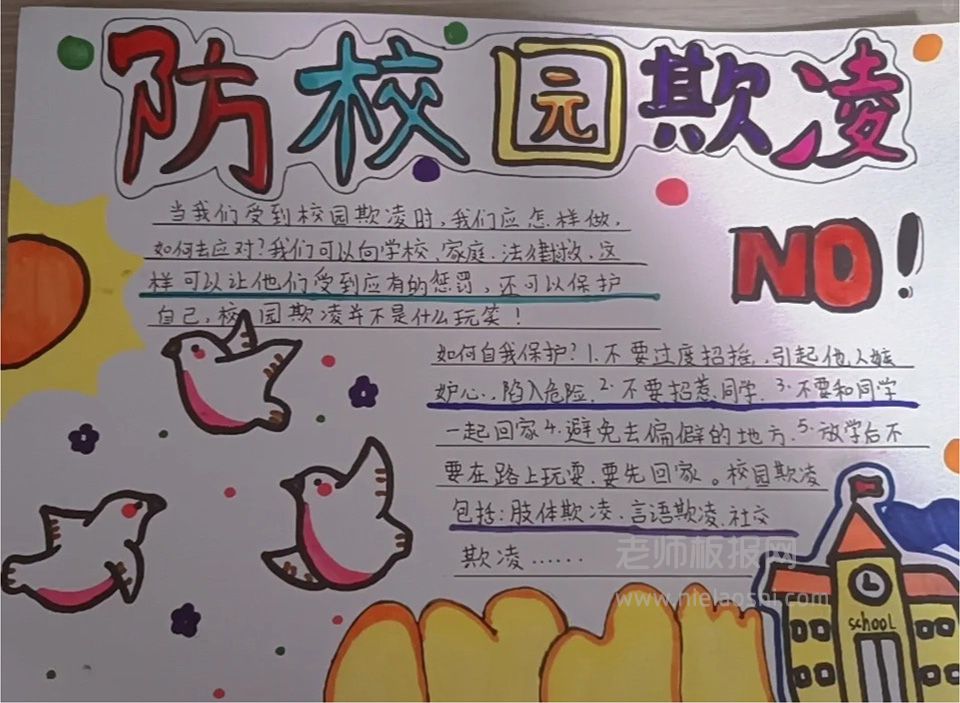 防校园欺凌
当我们受到校园欺凌时,我们应怎样做,
如何去应对?我们可以向学校、家庭、法律求救,这
样可以让他们受到应有的惩罚,还可以保护
自己,校园欺凌并不是什么玩笑!
NO!
如何自我保护?1.不要过度招摇,引起他人嫉
妒心,陷入危险.2.不要招惹同学.3.不要和同学
一起回家4.避免去偏僻的地方.5.放学后不
要在路上玩耍.要先回家。校园欺凌
包括:肢体欺凌、言语欺凌、社交
欺凌……
老师板报网
www.nielaoshi.com
SCHOOL